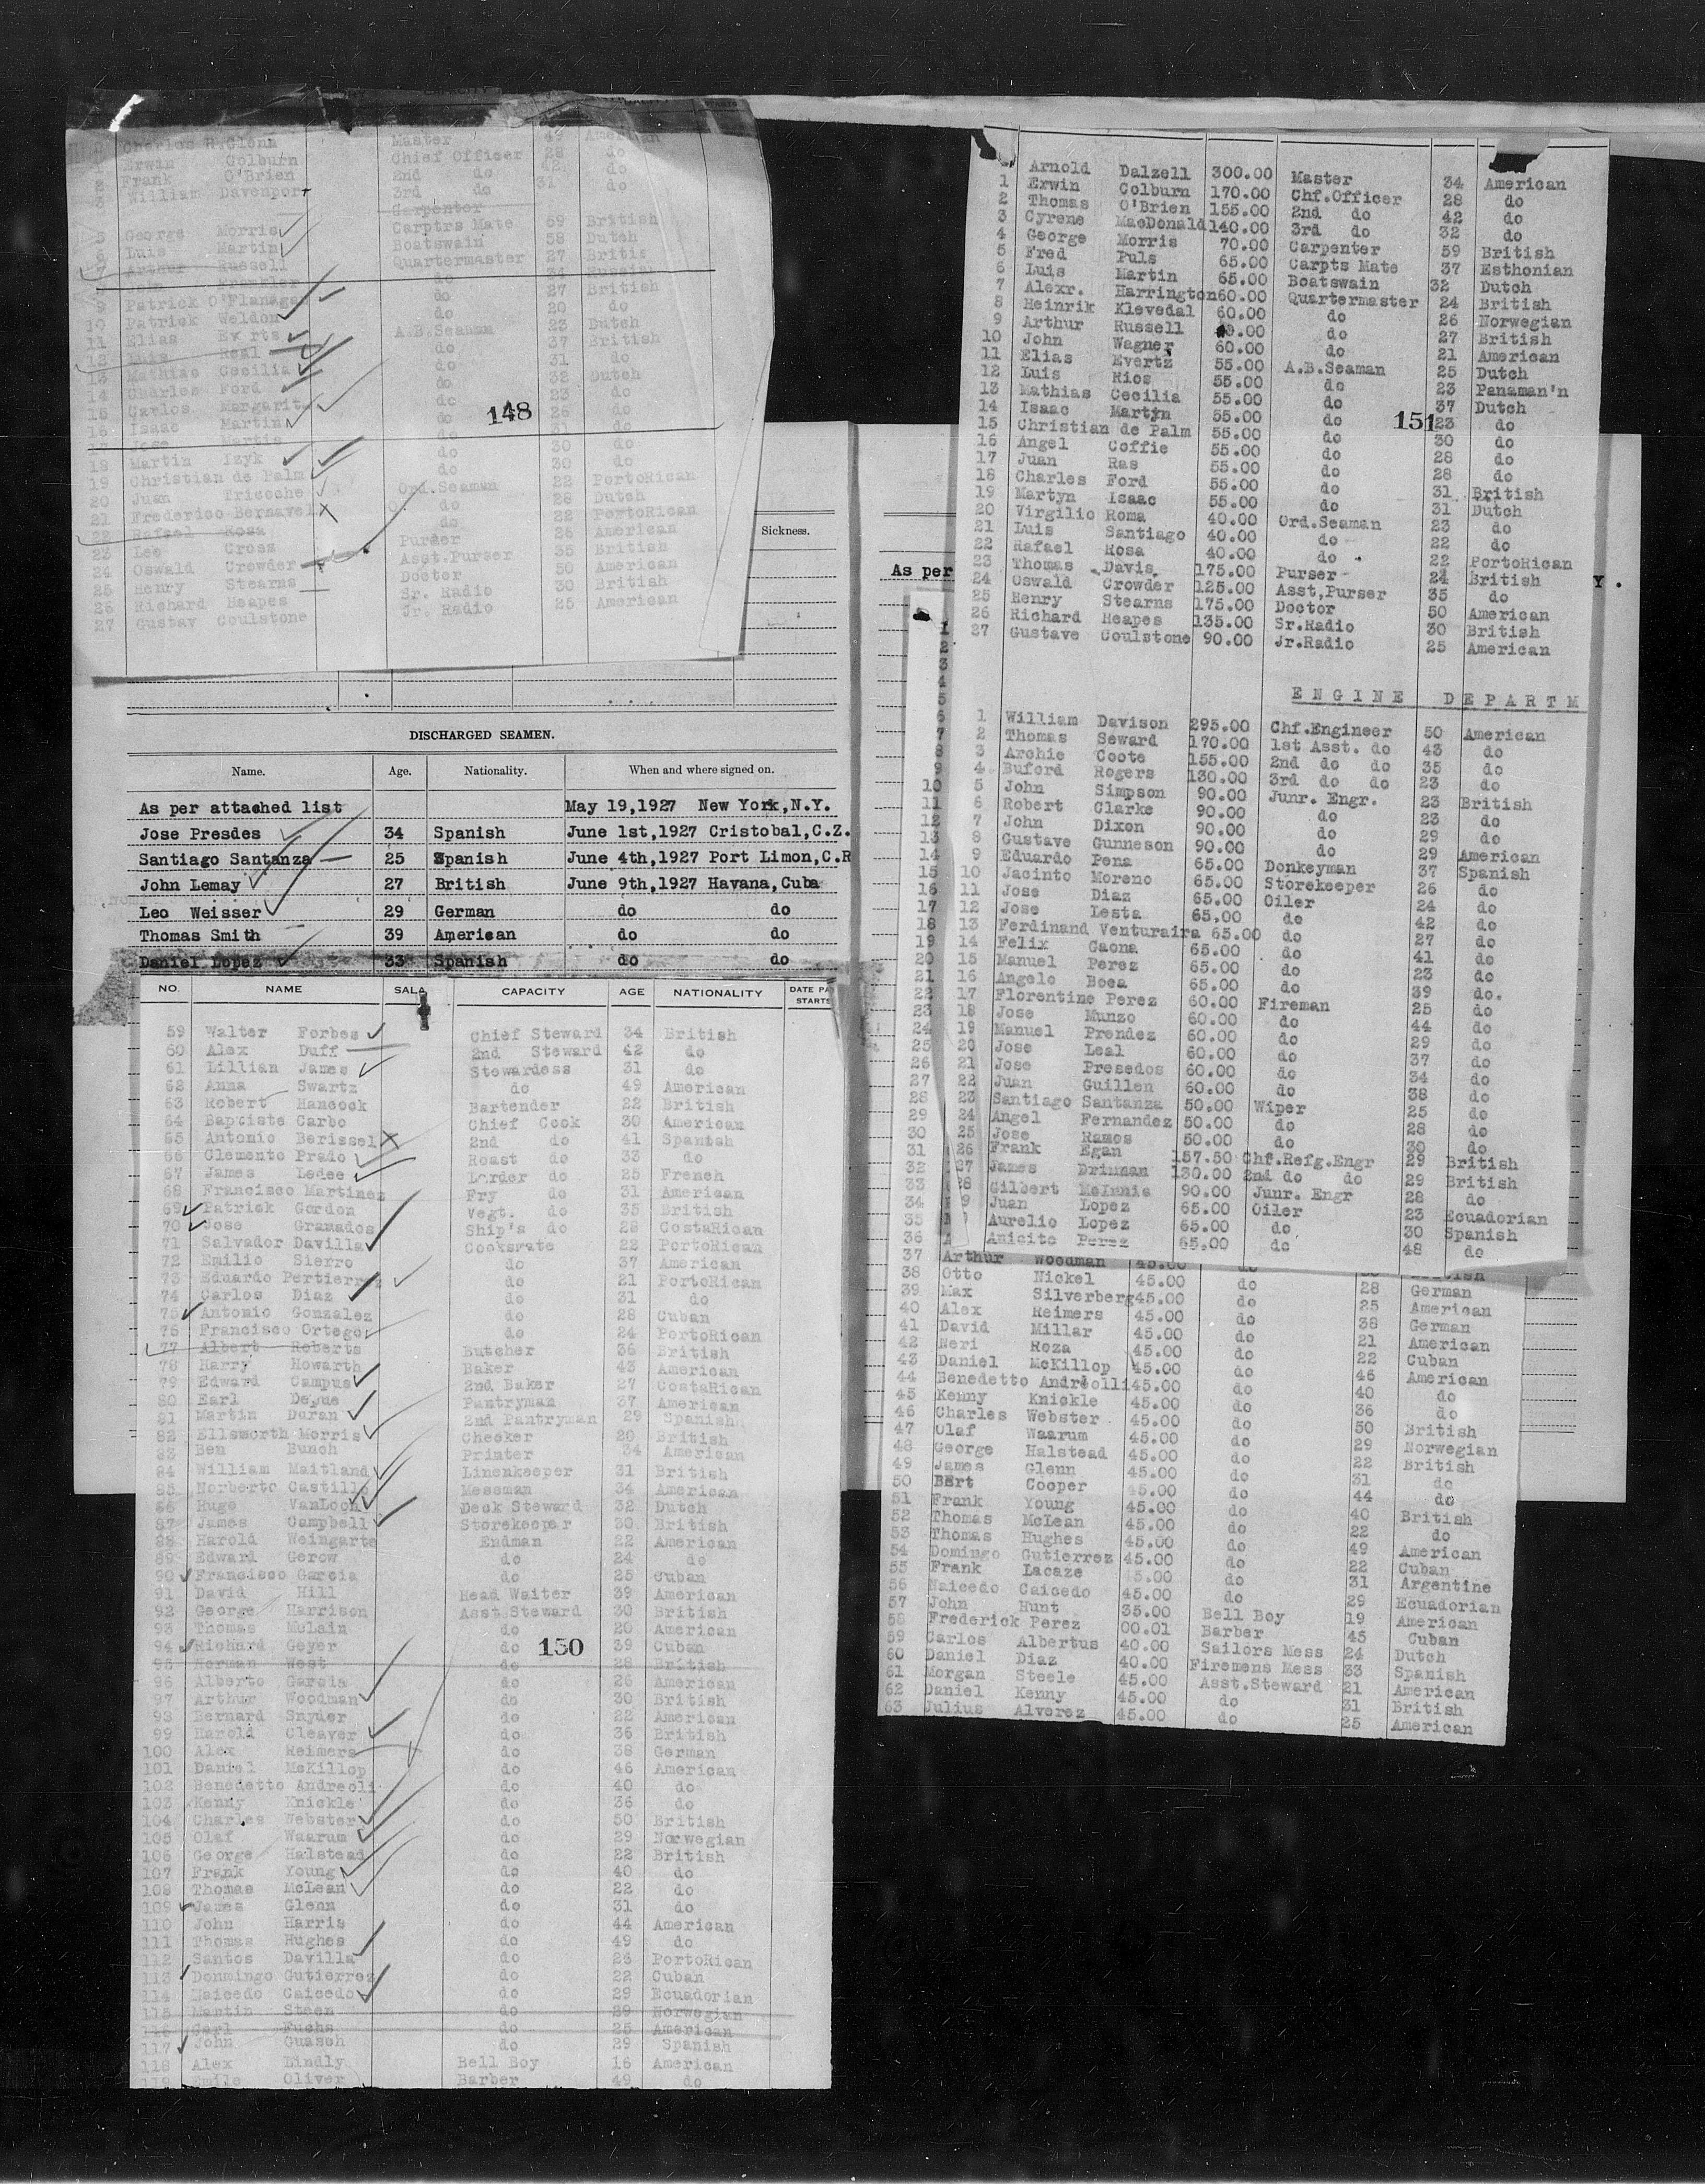 Charles R.Glenn Master American
1 Erwin Colburn Chief Officer 28 do
2 Frank O'Brien 2nd do 42 do
3 William Davenport 3rd do 31 do
Carpentor
5 George Morris Carptrs Mate 59 British
6 Luis Martin Boatswain 58 Dutch
7 Arthur Russell Quartermaster 27
do 34 Russian
9 Patrick O'Flanagan do 27 British
10 Patrick Weldon do 20 do
11 Elias Ev rts A.B.Seaman 23 Dutch
12 Luis Real do 37 British
13 Mathias Cecilia do 31 do
14 Charles Ford do 32 Dutch
15 Carlos Margarit do 23 do
16 Isaac Martin do 26 do
Jose Martis do 31 do
18 Martin Izyk do 30 do
19 Christian de Palm do 30 do
20 Juan Tricoche Ord.Seaman 22 PortoRican
21 Frederico Bernavel do 28 Dutch
22 Rafael Rosa do 22 PortoRican
23 Leo Cross Purser 26 American
24 Oswald Crowder Asst.Purser 35 British
25 Henry Stearns Doctor 50 American
26 Richard Heapes Sr. Radio 30 British
27 Gustav Coulstone Jr. Radio 25 American
148
Sickness.
DISCHARGED SEAMEN.
Name. Age. Nationality. When and where signed on.
As per attached list May 19,1927 New York,N.Y.
Jose Presdes 34 Spanish June 1st,1927 Cristobal,C.Z.
Santiago Santanza 25 Spanish June 4th,1927 Port Limon,C.R
John Lemay 27 British June 9th,1927 Havana,Cuba
Leo Weisser 29 German do do
Thomas Smith 39 American do do
Daniel Lopez 33 Spanish do do
NO. NAME SALA CAPACITY AGE NATIONALITY DATE PA STARTS
59 Walter Forbes Chief Steward 34 British
60 Alex Duff 2nd Steward 42 do
61 Lillian James Stewardess 31 do
62 Anna Swartz do 49 American
63 Robert Hancock Bartender 22 British
64 Baptiste Carbo Chief Cook 30 American
65 Antonio Berissel 2nd do 41 Spanish
66 Clemento Prado Roast do 33 do
67 James Ledee Larder do 25 French
68 Francisco Martinez Fry do 31 American
69 Patrick Gordon Vegt. do 35 British
70 Jose Granados Ship's do 28 CostaRican
71 Salvador Davilla Cooksmate 22 PortoRican
72 Emilio Sierro do 37 American
73 Eduardo Pertierrez do 21 PortoRican
74 Carlos Diaz do 31 do
75 Antonio Gonzalez do 28 Cuban
76 Francisco Ortego do 24 PortoRican
77 Albert Roberts Butcher 36 British
78 Harry Howarth Baker 43 American
79 Edward Campus 2nd Baker 27 CostaRican
80 Earl Depue Pantryman 37 American
81 Martin Doran 2nd Pantryman 29 Spanish
82 Ellsworth Morris Checker 20 British
83 Ben Bunch Printer 34 American
84 William Maitland Linenkeeper 31 British
85 Norberto Castillo Messman 34 American
86 Hugo VanLoon Deck Steward 32 Dutch
87 James Campbell Storekeeper 30 British
88 Harold Weingarte Endman 22 American
89 Edward Gerow do 24 do
90 Francisco Garcia do 25 Cuban
91 David Hill Head Waiter 39 American
92 George Harrison Asst.Steward 30 British
93 Thomas McLain do 20 American
94 Richard Geyer do 39 Cuban
150
95 Herman West do 28 British
96 Alberto Garcia do 26 American
97 Arthur Woodman do 30 British
98 Bernard Snyder do 22 American
99 Harold Cleaver do 36 British
100 Alex Reimers do 38 German
101 Daniel McKillop do 46 American
102 Benedetto Andreoli do 40 do
103 Kenny Knickle do 36 do
104 Charles Webster do 50 British
105 Olaf Waarum do 29 Norwegian
106 George Halstead do 22 British
107 Frank Young do 40 do
108 Thomas McLean do 22 do
109 James Glenn do 31 do
110 John Harris do 44 American
111 Thomas Hughes do 49 do
112 Santos Davilla do 26 PortoRican
113 Donmingo Gutierrez do 22 Cuban
114 Naicedo Caicedo do 29 Ecuadorian
115 Martin Steen do 29 Norwegian
116 Carl Fuchs do 25 American
117 John Guasch do 29 Spanish
118 Alex Lindly Bell Boy 16 American
119 Emile Oliver Barber 49 do
Arnold Dalzell 300.00 Master 34 American
1 Erwin Colburn 170.00 Chf.Officer 28 do
2 Thomas O'Brien 155.00 2nd do 42 do
3 Cyrene MacDonald 140.00 3rd do 32 do
4 George Morris 70.00 Carpenter 59 British
5 Fred Puls 65.00 Carpts Mate 37 Esthonian
6 Luis Martin 65.00 Boatswain 32 Dutch
7 Alexr. Harrington 60.00 Quartermaster 24 British
8 Heinrik Klevedal 60.00 do 26 Norwegian
9 Arthur Russell 60.00 do 27 British
10 John Wagner 60.00 do 21 American
11 Elias Evertz 55.00 A.B.Seaman 25 Dutch
12 Luis Rios 55.00 do 23 Panaman'n
13 Mathias Cecilia 55.00 do 37 Dutch
14 Isaac Martyn 55.00 do 23 do
151
15 Christian de Palm 55.00 do 30 do
16 Angel Coffie 55.00 do 28 do
17 Juan Ras 55.00 do 28 do
18 Charles Ford 55.00 do 31 British
19 Martyn Isaac 55.00 do 31 Dutch
20 Virgilio Roma 40.00 Ord.Seaman 23 do
21 Luis Santiago 40.00 do 22 do
22 Rafael Rosa 40.00 do 22 PortoRican
23 Thomas Davis 175.00 Purser 24 British
24 Oswald Crowder 125.00 Asst,Purser 35 do
25 Henry Stearns 175.00 Doctor 50 American
26 Richard Heapes 135.00 Sr.Radio 30 British
27 Gustave Coulstone 90.00 Jr.Radio 25 American
As per
Y.
ENGINE DEPARTM
1 William Davison 295.00 Chf.Engineer 50 American
2 Thomas Seward 170.00 1st Asst. do 43 do
3 Archie Coote 155.00 2nd do do 35 do
4 Buford Rogers 130.00 3rd do do 23 do
5 John Simpson 90.00 Junr. Engr. 23 British
6 Robert Clarke 90.00 do 23 do
7 John Dixon 90.00 do 29 do
8 Gustave Gunneson 90.00 do 29 American
9 Eduardo Pena 65.00 Donkeyman 37 Spanish
10 Jacinto Moreno 65.00 Storekeeper 26 do
11 Jose Diaz 65.00 Oiler 24 do
12 Jose Lesta 65,00 do 42 do
13 Ferdinand Venturaira 65.00 do 27 do
14 Felix Gaona 65.00 do 41 do
15 Manuel Perez 65.00 do 23 do
16 Angelo Boea 65.00 do 39 do.
17 Florentine Perez 60.00 Fireman 25 do
18 Jose Munzo 60.00 do 44 do
19 Manuel Prendez 60.00 do 29 do
20 Jose Leal 60.00 do 37 do
21 Jose Presedos 60.00 do 34 do
22 Juan Guillen 60.00 do 38 do
23 Santiago Santanza 50.00 Wiper 25 do
24 Angel Fernandez 50.00 do 28 do
25 Jose Ramos 50.00 do 30 do
26 Frank Egan 157.50 Chf.Refg.Engr 29 British
27 James Drinnan 130.00 2nd do do 29 British
28 Gilbert McInnis 90.00 Junr. Engr 28 do
9 Juan Lopez 65.00 Oiler 23 Ecuadorian
Aurelio Lopez 65.00 do 30 Spanish
Anicito Perez 65.00 do 48 do
1
2
3
4
5
6
7
8
9
10
11
12
13
14
15
16
17
18
19
20
21
22
23
24
25
26
27
28
29
30
31
32
33
34
35
36
37 Arthur Woodman 45.00 do
38 Otto Nickel 45.00 do 28 German
39 Max Silverberg 45.00 do 25 American
40 Alex Reimers 45.00 do 38 German
41 David Millar 45.00 do 21 American
42 Neri Roza 45.00 do 22 Cuban
43 Daniel McKillop 45.00 do 46 American
44 Benedetto Andreolli 45.00 do 40 do
45 Kenny Knickle 45.00 do 36 do
46 Charles Webster 45.00 do 50 British
47 Olaf Waarum 45.00 do 29 Norwegian
48 George Halstead 45.00 do 22 British
49 James Glenn 45.00 do 31 do
50 BErt Cooper 45.00 do 44 do
51 Frank Young 45.00 do 40 British
52 Thomas McLean 45.00 do 22 do
53 Thomas Hughes 45.00 do 49 American
54 Domingo Gutierrez 45.00 do 22 Cuban
55 Frank Lacaze 5.00 do 31 Argentine
56 Naicedo Caicedo 45.00 do 29 Ecuadorian
57 John Hunt 35.00 Bell Boy 19 American
58 Frederick Perez 00.01 Barber 45 Cuban
59 Carlos Albertus 40.00 Sailors Mess 24 Dutch
60 Daniel Diaz 40.00 Firemens Mess 33 Spanish
61 Morgan Steele 45.00 Asst.Steward 21 American
62 Daniel Kenny 45.00 do 31 British
63 Julius Alverez 45.00 do 25 American